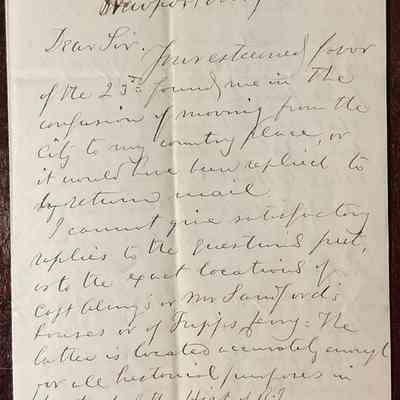 Dear Sir. Your esteemed favor
of the 23rd found me in the
confusion of moving from the
City to my country place, or
it would have been replied to
by return mail.
I cannot give satisfactory
replies to the questions put,
as to the exact locations of
Capt. or Mr Sandford's
houses or of Tripps ferry. The
latter is located accurately enough
for all historical purposes in
the Hist of R.I.